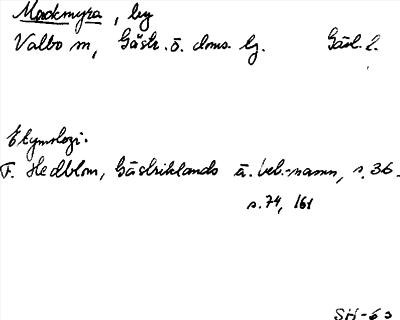 Mackmyra, by
Valbo sn, Gästr. ö. doms. lg. Gästr. l.
Etymologi:
F. Hedblom, Gästriklands ä. beb.-namn, s. 36.
s. 74, 161
SH-63